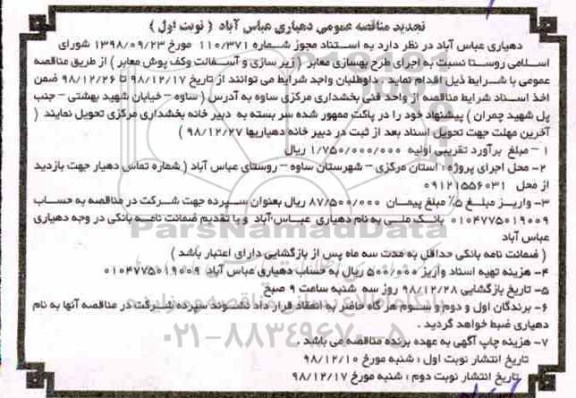 تجدید مناقصه عمومی دهیاری عباس آباد ( نوبت اول )
دهیاری عباس آباد در نظر دارد به استناد مجوز شماره ۱۱۰/۳۷۱ مورخ ۱۳۹۸/۰۹/۲۳ شورای
اسلامی روستا نسبت به اجرای طرح بهسازی معابر ( زیر سازی و آسفالت وکف پوش معابر ) از طریق مناقصه
عمومی با شرایط ذیل اقدام نماید . داوطلبان واجد شرایط می توانند از تاریخ ۹۸/۱۲/۱۷ تا ۹۸/۱۲/۲۶ ضمن
اخذ اسناد شرایط مناقصه از واحد فنی بخشداری مرکزی ساوه به آدرس ( ساوه – خیابان شهید بهشتی – جنب
پل شهید چمران ) پیشنهاد خود را در پاکت ممهور شده سر بسته به دبیر خانه بخشداری مرکزی تحویل نمایند (
آخرین مهلت جهت تحویل اسناد بعد از ثبت در دبیر خانه دهیاریها ۹۸/۱۲/۲۷ )
۱ – مبلغ برآورد تقریبی اولیه ۱/۷۵۰/۰۰۰/۰۰۰ ریال
۲- محل اجرای پروژه : استان مرکزی – شهرستان ساوه – روستای عباس آباد ( شماره تماس دهیار جهت بازدید
از محل ۰۹۱۲۱۵۵۶۰۳۱
۳- واریز مبلغ ۵٪ مبلغ پیمان ۸۷/۵۰۰/۰۰۰ ریال بعنوان سپرده جهت شرکت در مناقصه به حساب
۰۱۰۴۷۷۵۰۱۹۰۰۹ بانک ملی به نام دهیاری عباس آباد و یا تقدیم ضمانت نامه بانکی در وجه دهیاری
عباس آباد
( ضمانت نامه بانکی حداقل به مدت سه ماه پس از بازگشایی دارای اعتبار باشد )
۴- هزینه تهیه اسناد واریز ۵۰۰/۰۰۰ ریال به حساب دهیاری عباس آباد ۰۱۰۴۷۷۵۰۱۹۰۰۹
۵- تاریخ بازگشایی ۹۸/۱۲/۲۸ روز سه شنبه ساعت ۹ صبح
۶- برندگان اول و دوم و سوم هر گاه حاضر به انعقاد قرار داد نشوند سپرده شرکت در مناقصه آنها به نام
دهیاری ضبط خواهد گردید .
۷- هزینه چاپ آگهی به عهده برنده مناقصه می باشد .
تاریخ انتشار نوبت اول : شنبه مورخ ۹۸/۱۲/۱۰
تاریخ انتشار نوبت دوم : شنبه مورخ ۹۸/۱۲/۱۷
ParsNamadData
۰۲۱-۸۸۳۴۹۶۷۰-۵